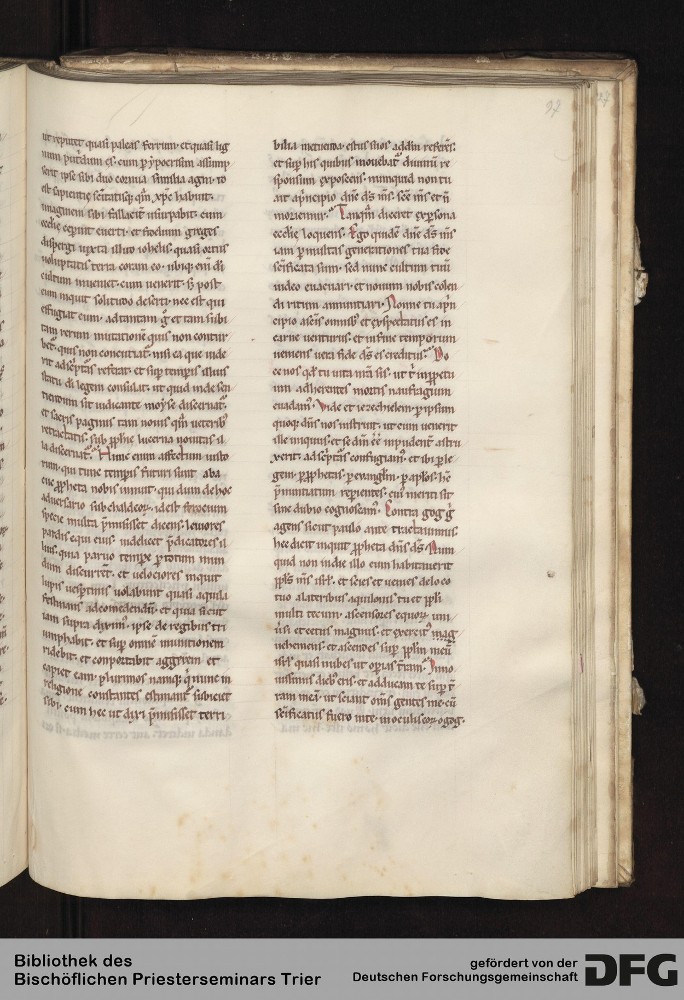 97
ut reputet quasi paleas ferrum· et quasi lig
num putridum es· cum p ypocrisim assump
serit ipse sibi duo cornua similia agni· id
est sapientię sc̄itatisq; qm̄ xp̄c habuit·
imaginem sibi fallacit̓ usurpabit· cum
ecclīę cep̄int euerti· et fidelium greges
dispergi iuxta illud iohelis· quasi ortus
uoluptatis terra coram eo· ubiq; eni di
cultum inueniet· cum uenerit· & post
eum inquit solitudo deserti· nec est qui
effugiat eum· ad tantam g̊ et tam subi
tam rerum mutationē quis non contur
bet̓· quis non concutiat̓· nisi ea que uide
rit ad sc̓ptas referat· et sup̓ temp̄is illius
statu di legem consulat· ut quid inde sen
tiendum sit iudicante moyse discernat·
et sacris paginis tam nouis qm̄ uetib̓
retractatis· sub pphie lucerna nouitas il
la discernat̓· Hunc eum affectum iusto
rum· qui tunc temp̄is futuri sunt aba
cuc ppheta nobis innuit· qui dum de hoc
aduersario sub chaldeoꝝ· id est ferocium
specie multa p̄misisset dicens· leuiores
pardis equi eius· uidelicet p̄dicatores il
lius· quia paruo tempr̄e p totum mun
dum discurrent· et uelociores inquit
lupis uesptinis uolabunt quasi aquila
festinans ad comedendū· et quia sicut
iam supra diximꝰ· ipse de regibus tri
umphabit· et sup̓ omnē munitionem
ridebit· et comportabit aggerem et
capiet eam· plurimos namq; q̓ nunc in
religione constantes estimant̓ subiciet
sibi· cum hec ut dixi p̄misisset terri
bilia metuenda· et suos addn̄m referēs·
et sup̓ his quibus mouebat̓ diuinū re
sponsum exposcens· numquid non tu
ait aprincipio dn̄e ds̄ ms̄· scē ms̄ et n̄
moriemur· Tanqm̄ diceret expsona
ecclīę loquens· Ego quidē dn̄e ds̄ ms̄
iam p multas generationes tua fide
sc̄ificata sum· sed nunc cultum tuū
uideo euacuari· et nouum nobis colen
di ritum annuntiari· Nonne tu apn̄
cipio a sc̄is omnib̓ et exspectatus es in
carne uenturus· et in fine temporum
ueniens uera fide ds̄ es creditus· Do
ce nos qd̓ tu uita nr̄a sis· ut t̓ inppetu
um adherentes mortis naufragium
euadam̓· Vide et iezechielem· p ipsum
quoq; dn̄s nos instruit· ut cum uenerit
ille iniquus· et se dn̄m ēē impudent̓ astru
xerit· ad sc̓ptas confugiam̓· et ibi p le
gem· p pphetas· p euangliū· p apl̄os· hc̄
p̄nuntiatum repientes· cui̓ meriti sit
sine dubio cognoscam̓· Contra gog g̊
agens sicut paulo ante tractauimus·
hec dicit inquit ppheta dn̄s ds̄· Num
quid non in die illo cum habitauerit
ppl̄s ms̄ isrl̄· et scies et uenies de loco
tuo a lateribus aquilonis tu et ppli
multi tecum· ascensores equoꝝ uni
ūsi· et cetus magnus· et exercit̓ mag̓
uehemens· et ascendes sup̓ pplm̄ meū
isrl̄ quasi nubes ut operias tr̄am· In no
uissimis dieb̓ eris· et adducam te sup̓ t̓
ram meā· ut sciant om̄s gentes me· cū
sc̄ificatus fuero in te· in oculis eoꝝ o gog·
Bibliothek des
Bischöflichen Priesterseminars Trier
gefördert von der
Deutschen Forschungsgemeinschaft
DFG